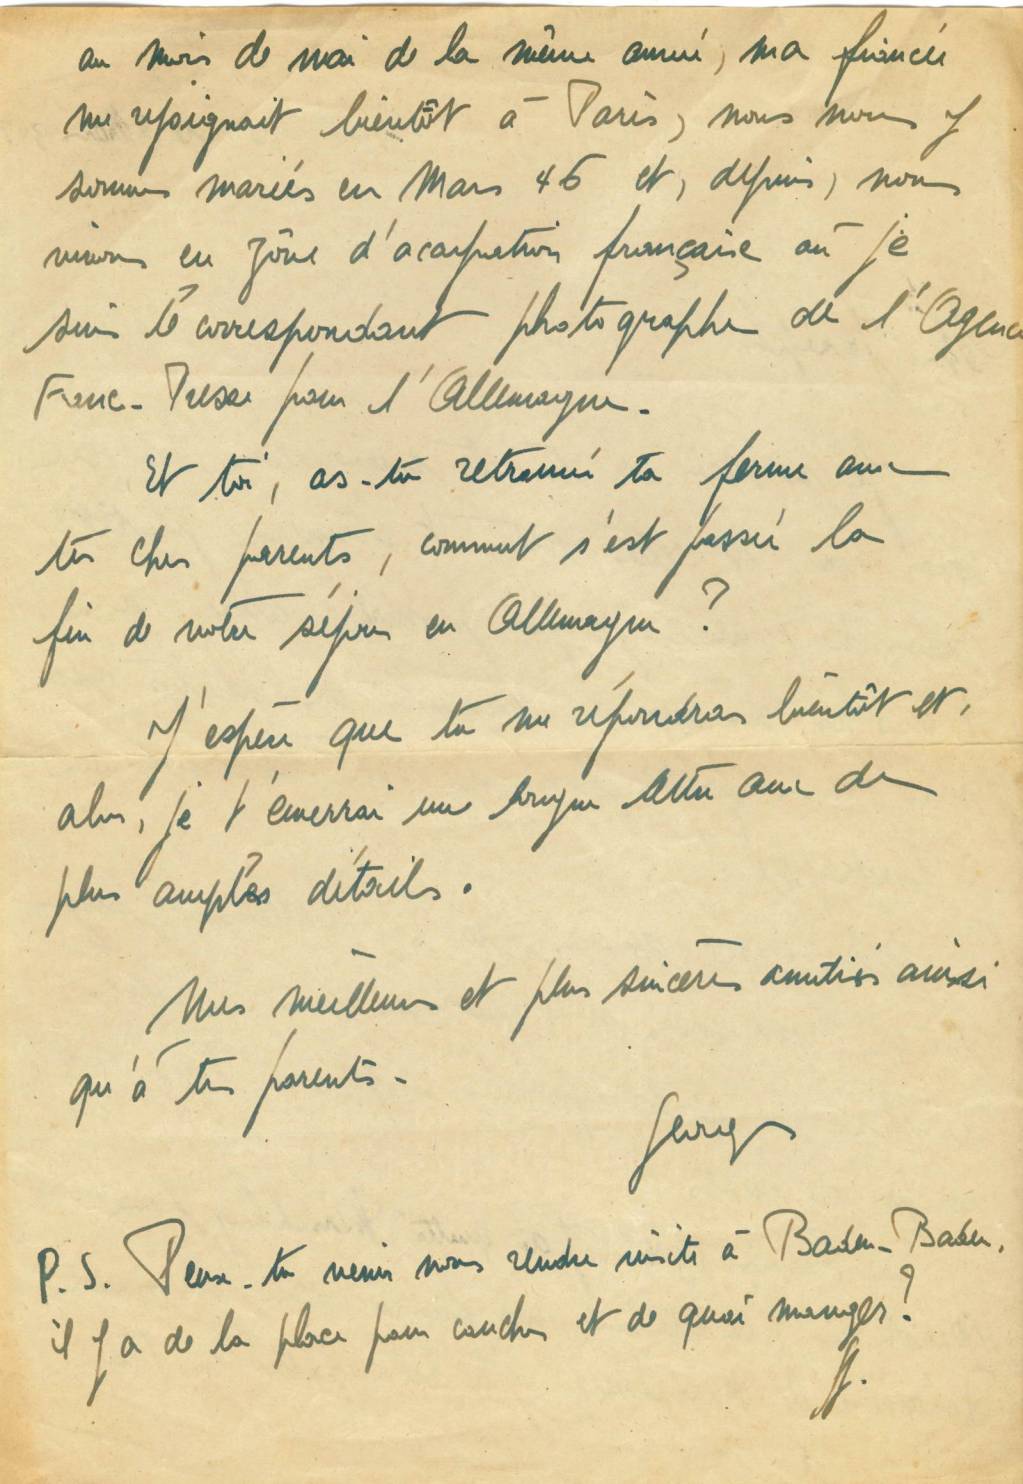 au mois de mai de la même année, ma fiancée
me rejoignait bientôt à Paris, nous nous y
sommes mariés en Mars 46 et, depuis, nous
vivons en zône d'occupation française où je
suis le correspondant photographe de l'Agence
France-Presse pour l'Allemagne.
Et toi, as-tu retrouvé ta ferme avec
tes chers parents, comment s'est passée la
fin de votre séjour en Allemagne ?
J'espère que tu me répondras bientôt et,
alors, je t'enverrai une longue lettre avec de
plus amples détails.
Mes meilleures et plus sincères amitiés ainsi
qu'à tes parents.
Georges
P.S. Peux-tu venir nous rendre visite à Baden-Baden,
il y a de la place pour coucher et de quoi manger ?